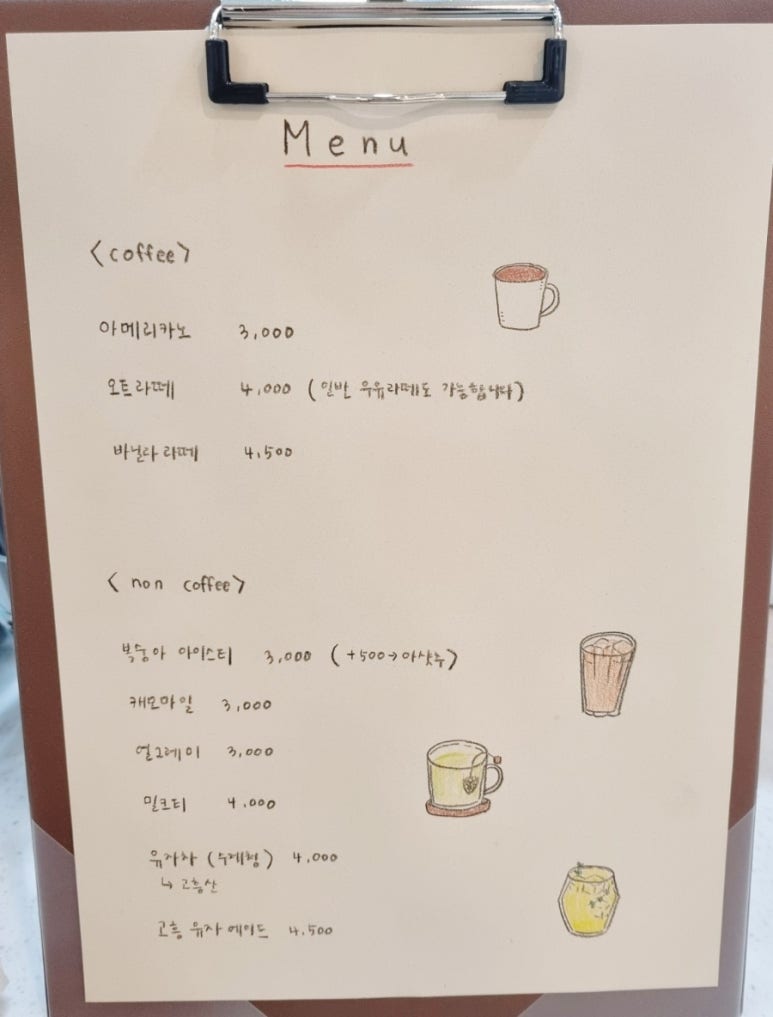 Menu
<coffee>
아메리카노 3,000
오트라떼 4,000 (일반 우유라떼도 가능합니다)
바닐라 라떼 4,500
< non coffee>
복숭아 아이스티 3,000 (+500→아샷추)
캐모마일 3,000
얼그레이 3,000
밀크티 4,000
유자차 (수제청) 4,000
↳ 고흥산
고흥 유자 에이드 4,500